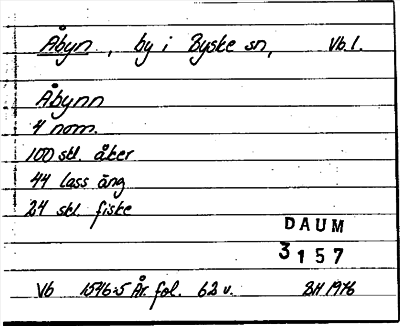 Åbyn, by i Byske sn, Vb.l.
Åbynn
4 nom.
100 skl. åker
44 lass äng
24 skl. fiske
DAUM
3157
Vb 1546:5 År. fol. 62 v. BH 1976